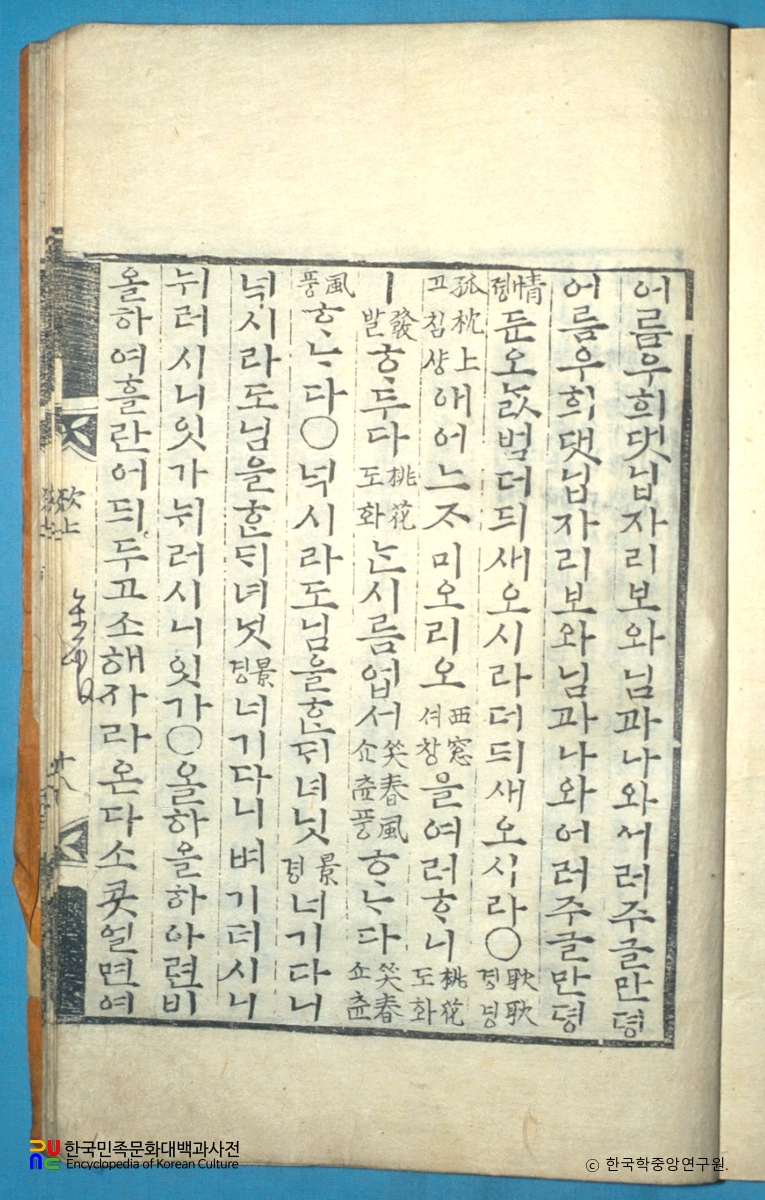 어름우희댓닙자리보와님과나와서러주글만뎡
어름우희댓닙자리보와님과나와어러주글만뎡
情졍둔오ᄂᆞᆳ범더듸새오시라더듸새오시라○耿耿경경
孤枕上고침샹애어느ᄌᆞ미오리오西窓셔창을여러ᄒᆞ니桃花도화
ㅣ發발ᄒᆞ두다桃花도화ᄂᆞᆫ시름업서笑春風쇼츈풍ᄒᆞᄂᆞ다笑春쇼츈
風풍ᄒᆞᄂᆞ다○넉시라도님을ᄒᆞᆫᄃᆡ녀닛景경너기다니
넉시라도님을ᄒᆞᆫᄃᆡ녀넛景경너기다니벼기더시니
뉘러시니잇가뉘러시니잇가○올하올하아련비
올하여흘란어듸두고소해자라온다소콧얼면여
歌上
한국민족문화대백과사전
Encyclopedia of Korean Culture
© 한국학중앙연구원.